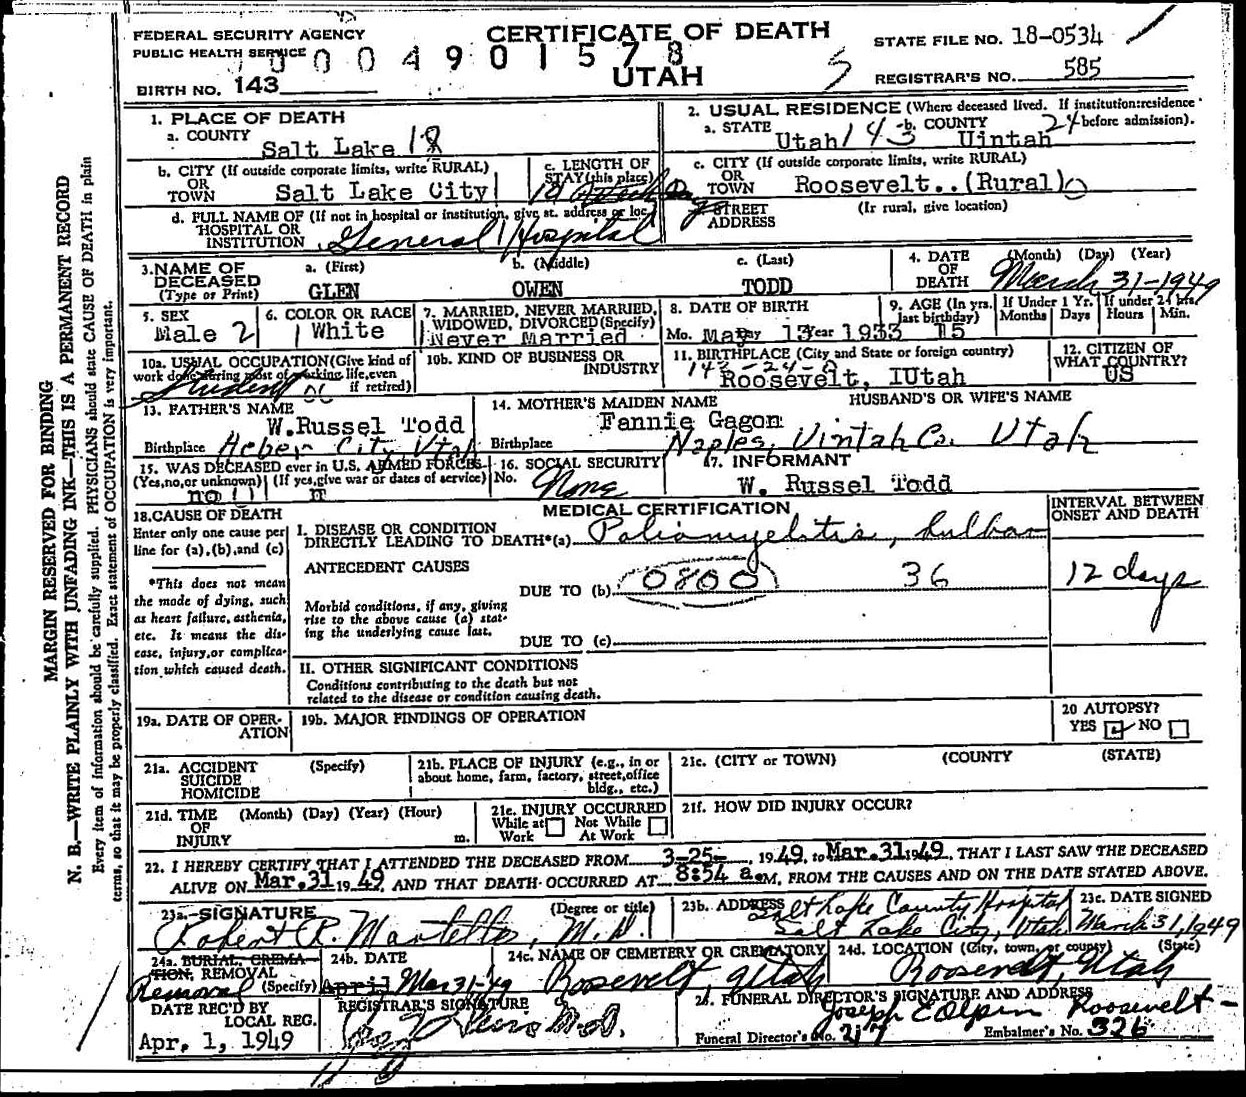 FEDERAL SECURITY AGENCY
PUBLIC HEALTH SERVICE
CERTIFICATE OF DEATH
UTAH
STATE FILE NO. 18-0534
REGISTRAR'S NO. 585
BIRTH NO. 143
000490 1578
1. PLACE OF DEATH
a. COUNTY Salt Lake 18
b. CITY (If outside corporate limits, write RURAL)
OR TOWN Salt Lake City
c. LENGTH OF STAY (this place)
d. FULL NAME OF (If not in hospital or institution, give st. address or loc.)
HOSPITAL OR INSTITUTION General Hospital
2. USUAL RESIDENCE (Where deceased lived. If institution:residence before admission).
a. STATE Utah 143 b. COUNTY Uintah 24
c. CITY (If outside corporate limits, write RURAL)
OR TOWN Roosevelt..(Rural)
STREET ADDRESS (Ir rural, give location)
3.NAME OF DECEASED (Type or Print)
a. (First) GLEN
b. (Middle) OWEN
c. (Last) TODD
4. DATE OF DEATH (Month) (Day) (Year)
March 31-1949
5. SEX Male 2
6. COLOR OR RACE White
7. MARRIED, NEVER MARRIED, WIDOWED, DIVORCED(Specify)
Never Married
8. DATE OF BIRTH
Mo. May Day 13 Year 1933
9. AGE (In yrs. last birthday) 15
If Under 1 Yr. Months Days
If under 24 hrs. Hours Min.
10a. USUAL OCCUPATION(Give kind of work done during most of working life,even if retired)
Student
10b. KIND OF BUSINESS OR INDUSTRY
11. BIRTHPLACE (City and State or foreign country)
Roosevelt, Utah
12. CITIZEN OF WHAT COUNTRY?
US
13. FATHER'S NAME
W.Russel Todd
Birthplace Heber City Utah
14. MOTHER'S MAIDEN NAME
Fannie Gagon
HUSBAND'S OR WIFE'S NAME
Birthplace Naples, Uintah Co. Utah
15. WAS DECEASED ever in U.S. ARMED FORCES
(Yes,no,or unknown) (If yes,give war or dates of service)
no
16. SOCIAL SECURITY No. None
17. INFORMANT
W. Russel Todd
MEDICAL CERTIFICATION
INTERVAL BETWEEN ONSET AND DEATH
18.CAUSE OF DEATH
Enter only one cause per line for (a),(b),and (c)
*This does not mean the mode of dying, such as heart failure, asthenia, etc. It means the disease, injury,or complication which caused death.
I. DISEASE OR CONDITION DIRECTLY LEADING TO DEATH*(a) Poliomyelitis, bulbar
ANTECEDENT CAUSES
DUE TO (b) 0800 36
12 days
Morbid conditions, if any, giving rise to the above cause (a) stating the underlying cause last.
DUE TO (c)
II. OTHER SIGNIFICANT CONDITIONS
Conditions contributing to the death but not related to the disease or condition causing death.
19a. DATE OF OPERATION
19b. MAJOR FINDINGS OF OPERATION
20 AUTOPSY?
YES NO
21a. ACCIDENT SUICIDE HOMICIDE (Specify)
21b. PLACE OF INJURY (e.g., in or about home, farm, factory, street,office bldg., etc.)
21c. (CITY or TOWN) (COUNTY) (STATE)
21d. TIME OF INJURY (Month) (Day) (Year) (Hour) m.
21e. INJURY OCCURRED
While at Work Not While At Work
21f. HOW DID INJURY OCCUR?
22. I HEREBY CERTIFY THAT I ATTENDED THE DECEASED FROM 3-25-, 1949, to Mar.31 1949, THAT I LAST SAW THE DECEASED
ALIVE ON Mar.31 1949 AND THAT DEATH OCCURRED AT 8:54 a.M. FROM THE CAUSES AND ON THE DATE STATED ABOVE.
23a. SIGNATURE (Degree or title)
Robert R. Martello, M.D.
23b. ADDRESS Salt Lake County Hospital
Salt Lake City, Utah
23c. DATE SIGNED
March 31, 1949
24a. BURIAL, CREMATION, REMOVAL (Specify)
Removal
24b. DATE
April Mar 31-49
24c. NAME OF CEMETERY OR CREMATORY
Roosevelt, Utah
24d. LOCATION (City, town, or county) (State)
Roosevelt, Utah
DATE REC'D BY LOCAL REG.
Apr. 1, 1949
REGISTRAR'S SIGNATURE
M.D.
25. FUNERAL DIRECTOR'S SIGNATURE AND ADDRESS
Joseph E Olpin Roosevelt-
Funeral Director's No. 217 Embalmer's No. 326
MARGIN RESERVED FOR BINDING
N. B.—WRITE PLAINLY WITH UNFADING INK—THIS IS A PERMANENT RECORD
Every item of information should be carefully supplied. PHYSICIANS should state CAUSE OF DEATH in plain
terms, so that it may be properly classified. Exact statement of OCCUPATION is very important.